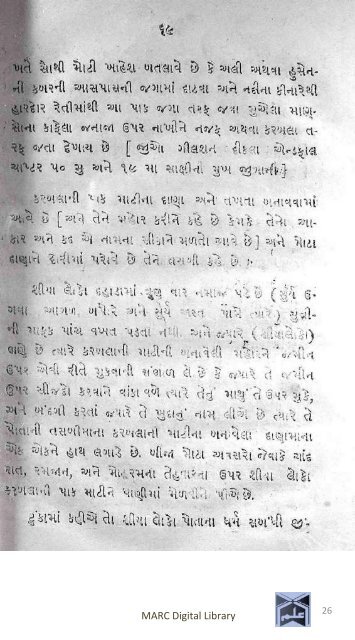 ૬૯
ખતે સૌથી મોટી ખાહેશ બતલાવે છે કે અલી અથવા હુસેન-
ની કબરની આસપાસની જગામાં દાટવા અને નદીના કીનારેથી
હારદાર રેતીમાંથી આ પાક જગા તરફ જવા ગુએલા માણ-
સોના કાફેલા જનાજા ઉપર નાખીને નજફ અથવા કરબલા ત-
રફ જતા દેખાય છે [ જીઓ ગીલશન ડીકલા એન્ડફાલ
ચાપ્ટર ૫૦ મુ અને ૧૯ મા સાક્ષીની મુખ જીબાની]
કરબલાની પાક માટીના દાણા અને તખતા બનાવવામાં
આવે છે [ અને તેને મહોર કરીને કહે છે કેમકે તેનો આ-
કાર અને કદ એ નામના શીકાને મળતો આવે છે ] અને મોટા
દાણાને દોરીમાં પરોવે છે તેને તસબી કહે છે.
શીયા લોકો દહાડામાં ત્રણ વાર નમાજ પઢે છે (સુર્ય ઉ-
ગવા આગળ બપોરે અને સુર્ય અસ્ત પામે ત્યારે) સુન્ની-
ની માફક પાંચ વખત પઢતા નથી. અને જ્યારે (શીયાલોકો)
છે ત્યારે કરબલાની માટીની બનાવેલી મહોરને જમીન
ઉપર એવી રીતે મુકવાની સંભાળ લે છે કે જ્યારે તે જમીન
ઉપર સીજદો કરવાને વાંકા વળે ત્યારે તેનું માથું તે ઉપર મુકે,
અને બંદગી કરતાં જ્યારે તે ખુદાનું નામ લીએ છે ત્યારે તે
પોતાની તસબીમાના કરબલાની માટીના બનાવેલા દાણામાના
એક એકને હાથ લગાડે છે. બીજા મોટા અવસરો જેવાકે ચાંદ
રાત, રમજાન, અને મોહરમના તેહવારના ઉપર શીયા લોકો
કરબલાની પાક માટીને પાણીમાં મેળવીને પીએ છે.
ટુંકામાં કહીએ તો શીયા લોકો પોતાના ધર્મ સબંધી જી-
MARC Digital Library
26